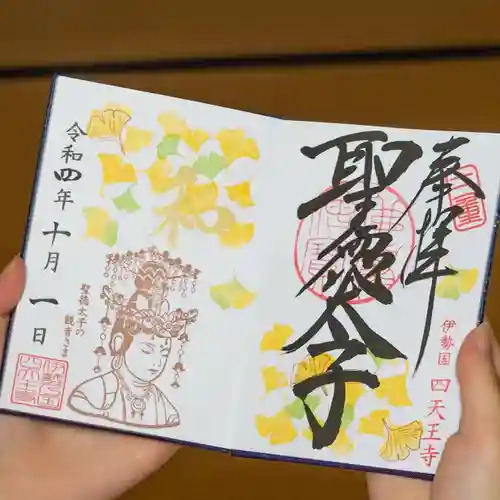 奉拝
聖徳太子
伊勢国 四天王寺
和
聖徳太子の
観音さま
令和四年十月一日